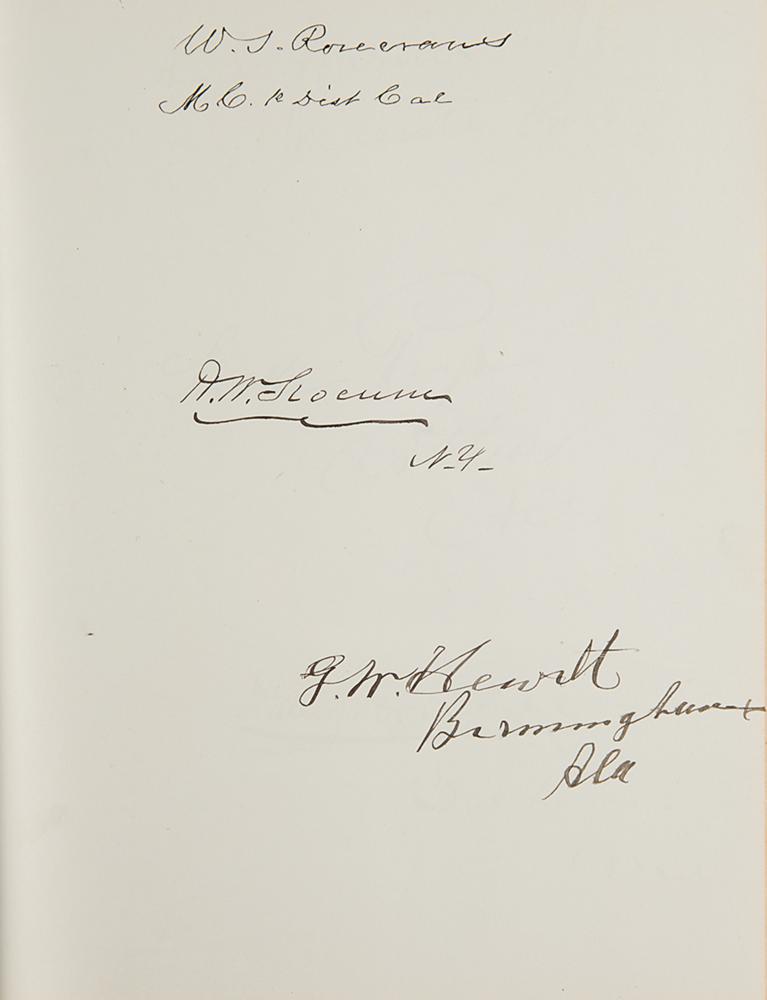 W. S. Rosecrans
M C. 1st Dist Cal
H. W. Slocum
N-Y-
G. W. Hewitt
Birmingham
Ala